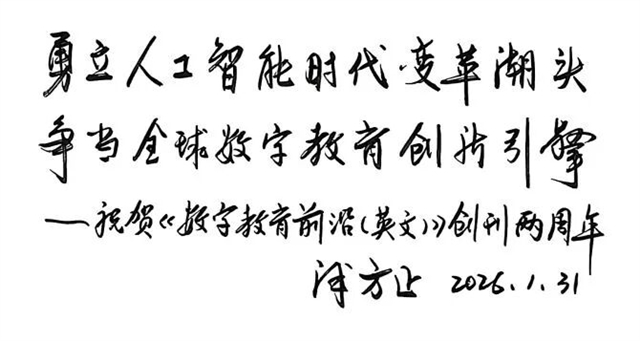 勇立人工智能时代变革潮头
争当全球数字教育创新引擎
——祝贺《数字教育前沿(英文)》创刊两周年
方 2026.1.31